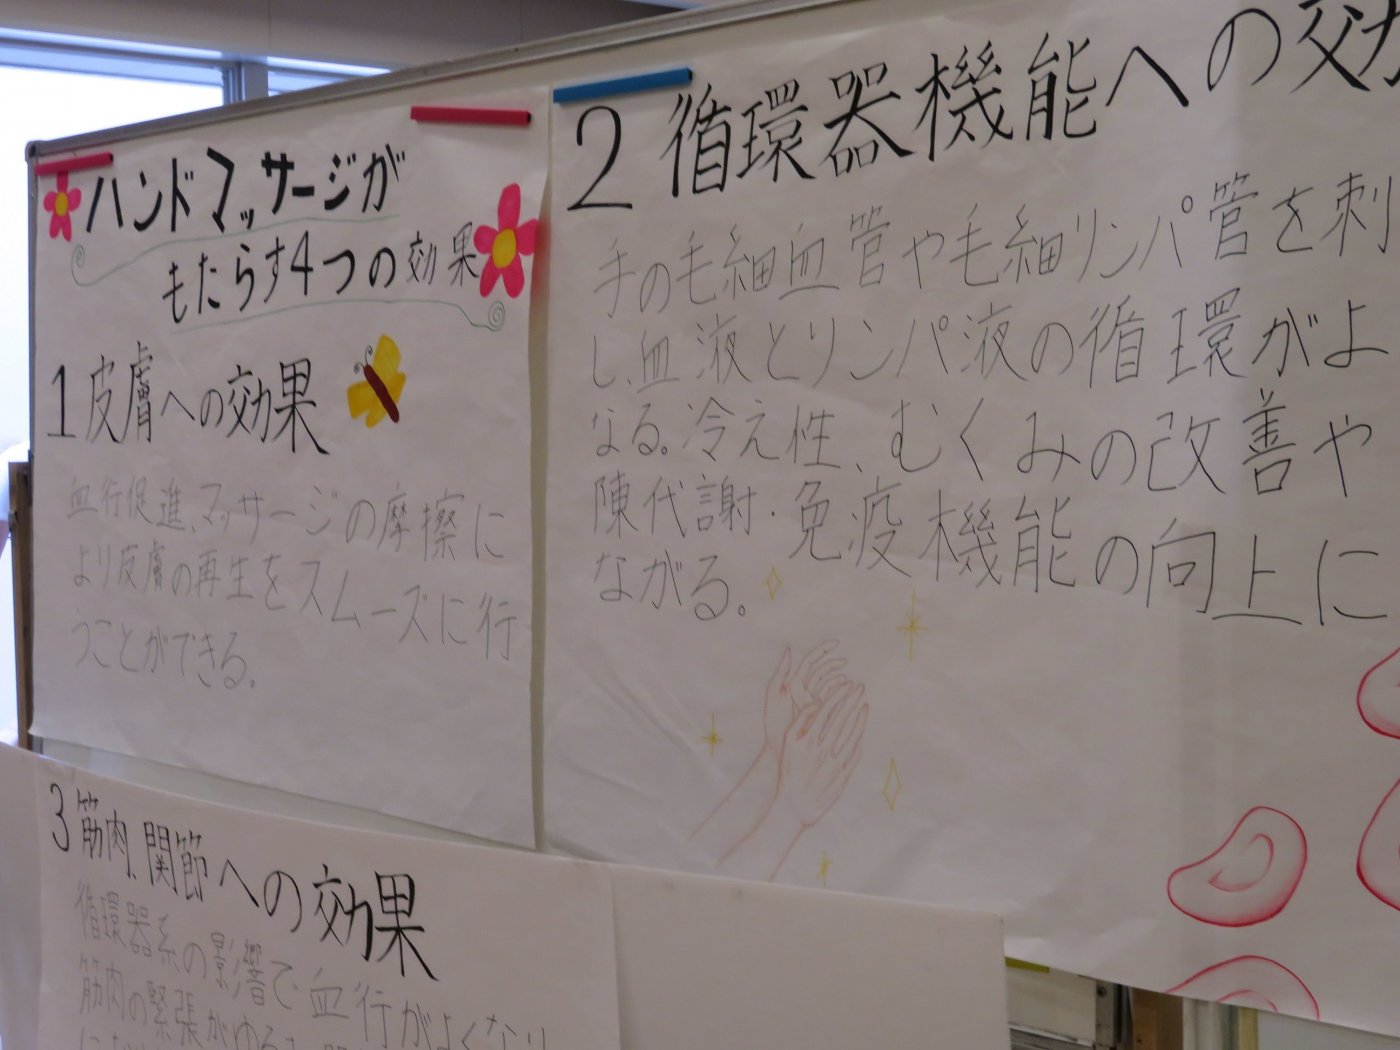 ハンドマッサージが
もたらす4つの効果
1 皮膚への効果
血行促進、マッサージの摩擦に
より皮膚の再生をスムーズに行
うことができる。
2 循環器機能への効
手の毛細血管や毛細リンパ管を刺
し、血液とリンパ液の循環がよ
なる。冷え性、むくみの改善や
陳代謝・免疫機能の向上に
ながる。
3 筋肉、関節への効果
循環器系の影響で血行がよくなり
筋肉の緊張がゆる